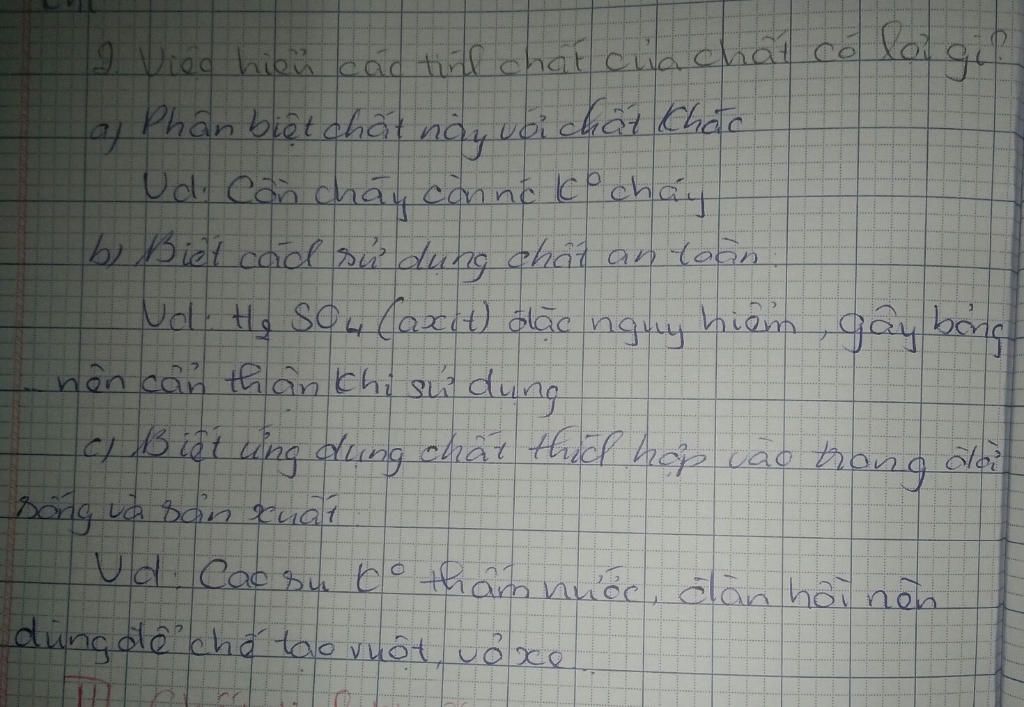 2. Việc hiểu các tính chất của chất có lợi gì?
a) Phân biệt chất này với chất khác
Vd: Cồn cháy còn nc k° cháy
b) Biết cách sử dụng chất an toàn
Vd: H₂SO₄ (axit) đặc nguy hiểm, gây bỏng
nên cẩn thận khi sử dụng
c) Biết ứng dụng chất thích hợp vào trong đời
sống và sản xuất
Vd. Cao su k° thấm nước, đàn hồi nên
dùng để chế tạo ruột, vỏ xe.